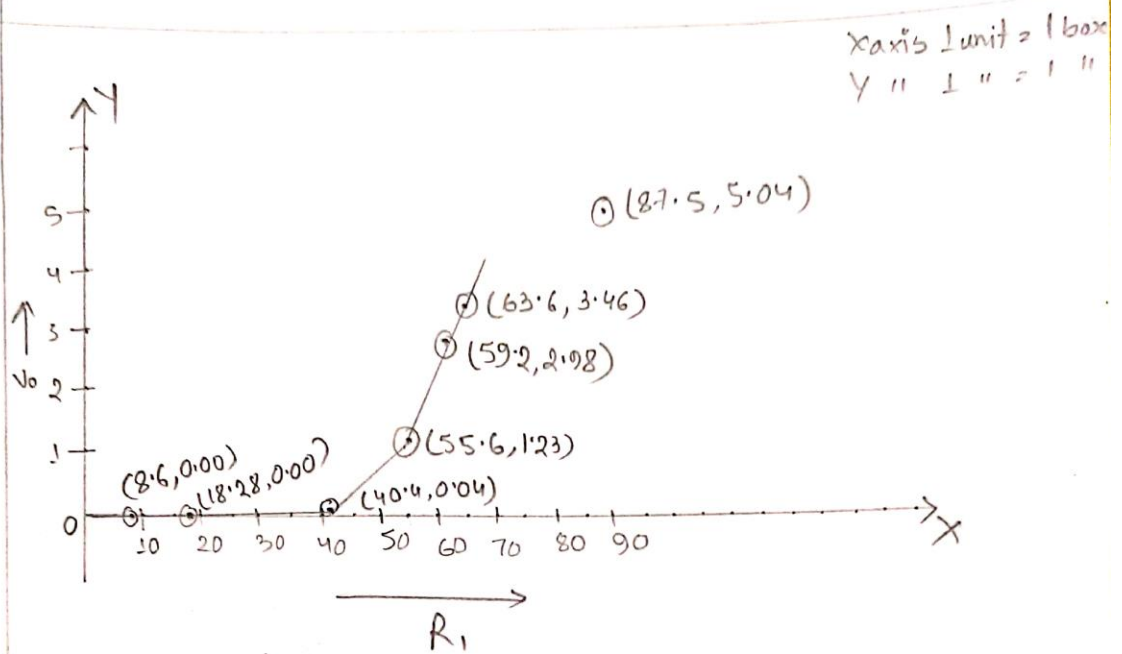 Xaxis 1 unit = 1 box
Y " 1 " = 1 "
Y
(87.5, 5.04)
5
4
(63.6, 3.46)
3
(59.2, 2.98)
Vo
2
1
(55.6, 1.23)
(8.6, 0.00)
(18.28, 0.00)
(40.4, 0.04)
0
10 20 30 40 50 60 70 80 90
X
R₁